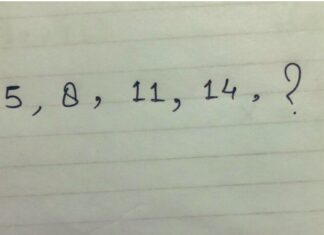 5, 8, 11, 14, ?